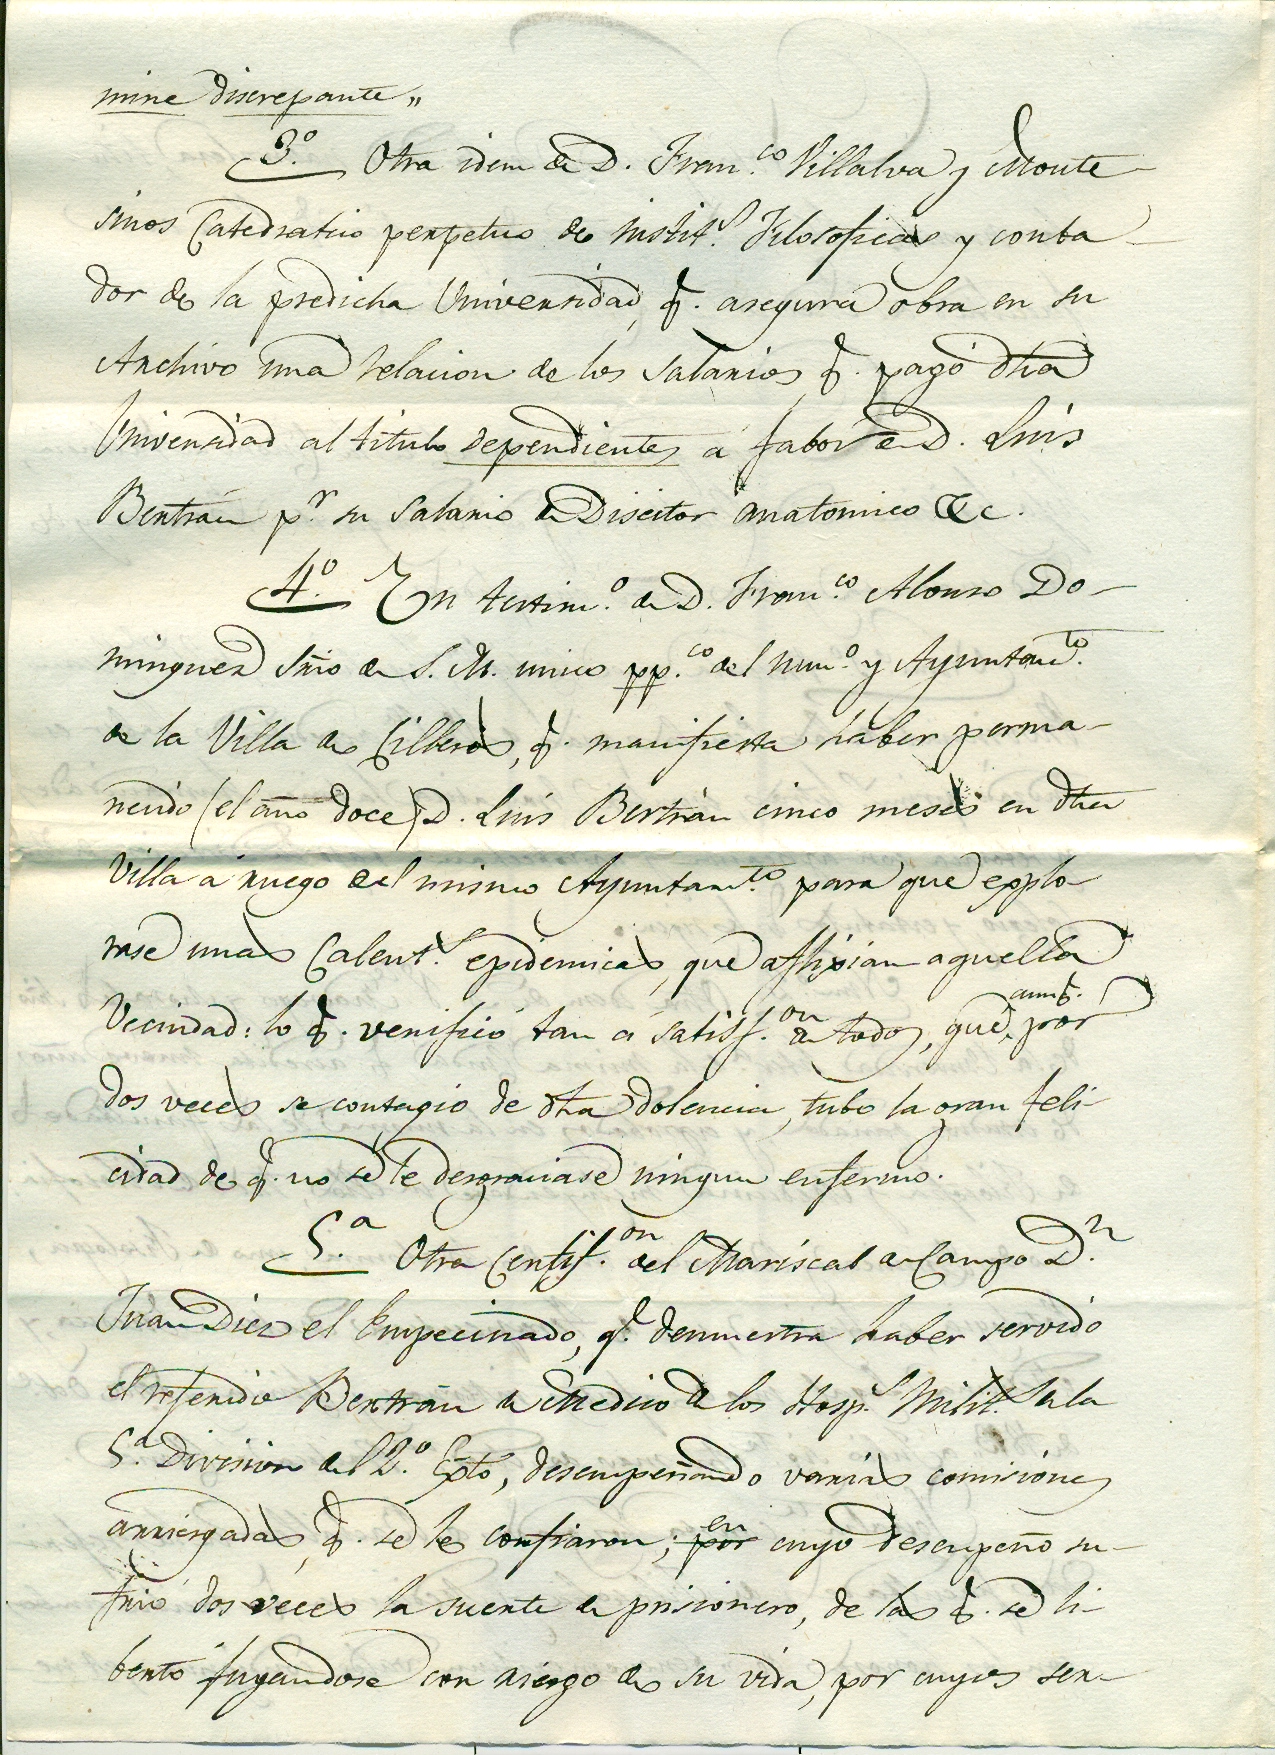 mine discrepante„
3.º Otra idem de D. Fran.co Villalva y Monte-
sinos Catedratico perpetuo de instit.s Filosoficas y conta-
dor de la predicha Universidad, q. asegura obra en su
Archivo una relacion de los salarios, q. pagó dha
Universidad al titulo dependientes á fabor de D. Luis
Bertrán p.r su salario de Disector anatomico &c.
4.º Un testim.o de D. Fran.co Alonso Do-
minguez Sñio de S. M. unico pp.co del num.o y Ayuntam.to
de la Villa de Cilleros, q. manifiesta haber perma-
necido (el año doce) D. Luis Bertrán cinco meses en dha
Villa á ruego del mismo Ayuntam.to para que esplo-
rase unas Calent.s epidemicas, que aflixian aquella
Vecindad: lo q. verificó tan á satisf.on de todos, que, aunq. por
dos veces se contagio de dha dolencia, tubo la gran feli-
cidad de q. no se le desgraciase ningun enfermo.
5.a Otra Certif.on del Mariscal de Campo D.n
Juan Diez el Empecinado, q. demuestra haber servido
el referido Bertrán de Medico de los Hosp.s Milit.s de la
5.a Division del 2.o Egto, desempeñando varias comisiones
arriesgadas, q. se le confiaron; por en cuyo desempeño su-
frió dos veces la suerte de prisionero, de las q. se li-
bertó fugandose con riesgo de su vida, por cuyos ser-